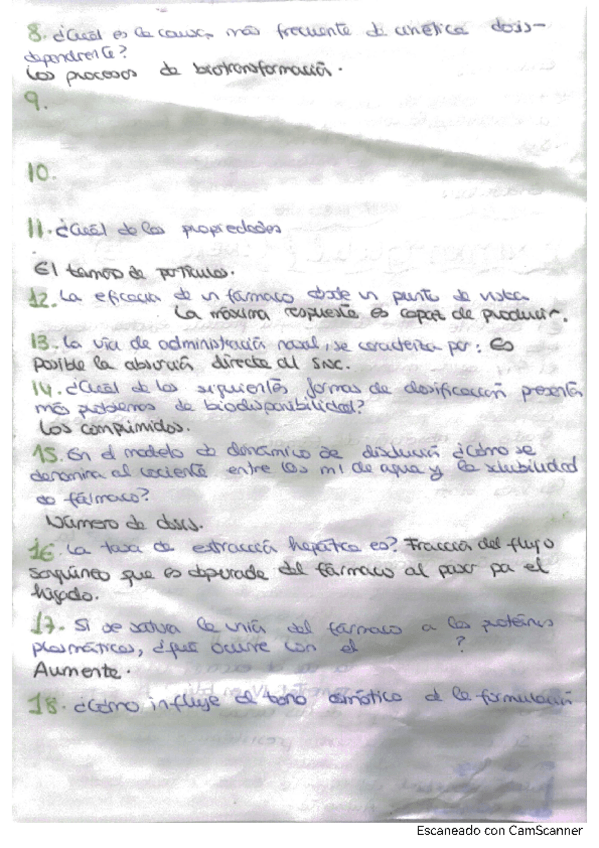 8. ¿Cuál es la causa más frecuente de cinética dosis-
dependiente?
Los procesos de biotransformación.
9.
10.
11. ¿Cuál de las propiedades
El tamaño de partículas.
12. La eficacia de un fármaco desde un punto de vista
La máxima respuesta es capaz de producir.
13. La vía de administración nasal, se caracteriza por: Es
posible la absorción directa al SNC.
14. ¿Cuál de las siguientes formas de dosificación presenta
más problemas de biodisponibilidad?
Los comprimidos.
15. En el modelo dinámico de disolución ¿Cómo se
denomina al cociente entre los ml de agua y la solubilidad
de fármaco?
Número de dosis.
16. La tasa de extracción hepática es? Fracción del flujo
sanguíneo que es depurada del fármaco al pasar por el
hígado.
17. Si se satura la unión del fármaco a las proteínas
plasmáticas, ¿qué ocurre con el ?
Aumente.
18. ¿Cómo influye el tono osmótico de la formulación
Escaneado con CamScanner